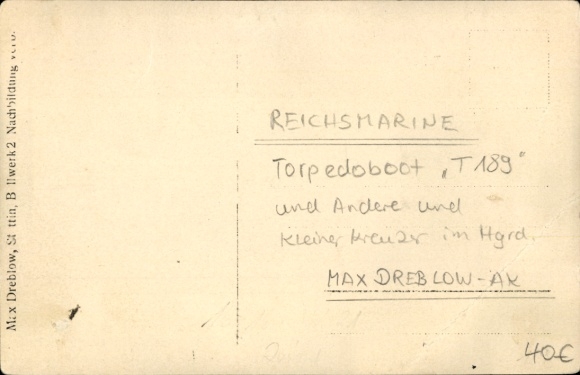 Max Dreblow, Stettin, Bollwerk 2 Nachbildung verb.
REICHSMARINE
Torpedoboot „T189"
und Andere und
Kleiner Kreuzer im Hgrd.
MAX DREBLOW-AK
40€